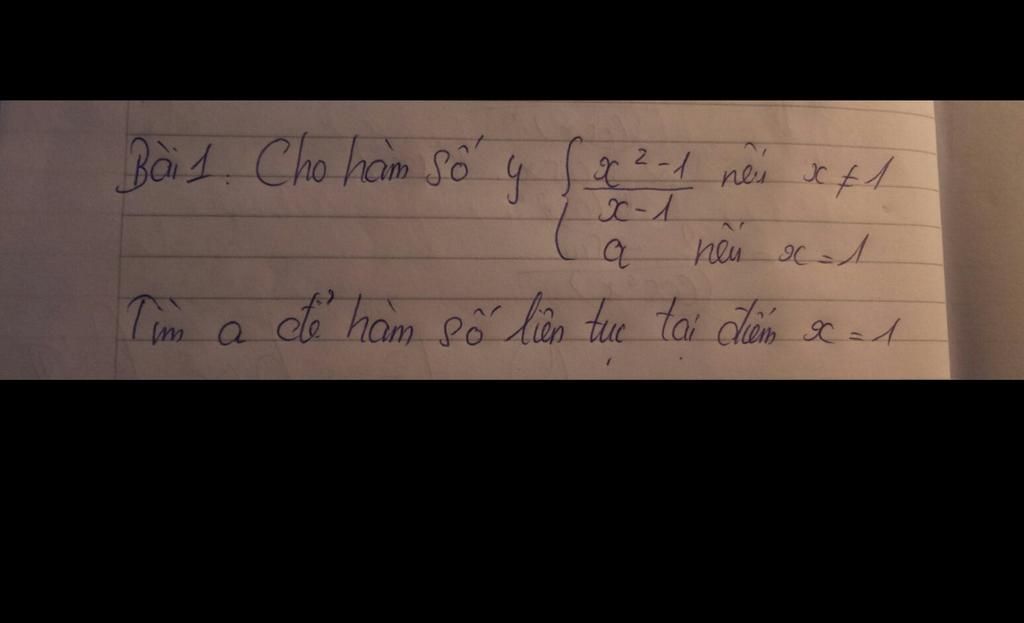 Bài 1. Cho hàm số y { x² - 1 / x - 1 nếu x ≠ 1
a nếu x = 1
Tìm a để hàm số liên tục tại điểm x = 1